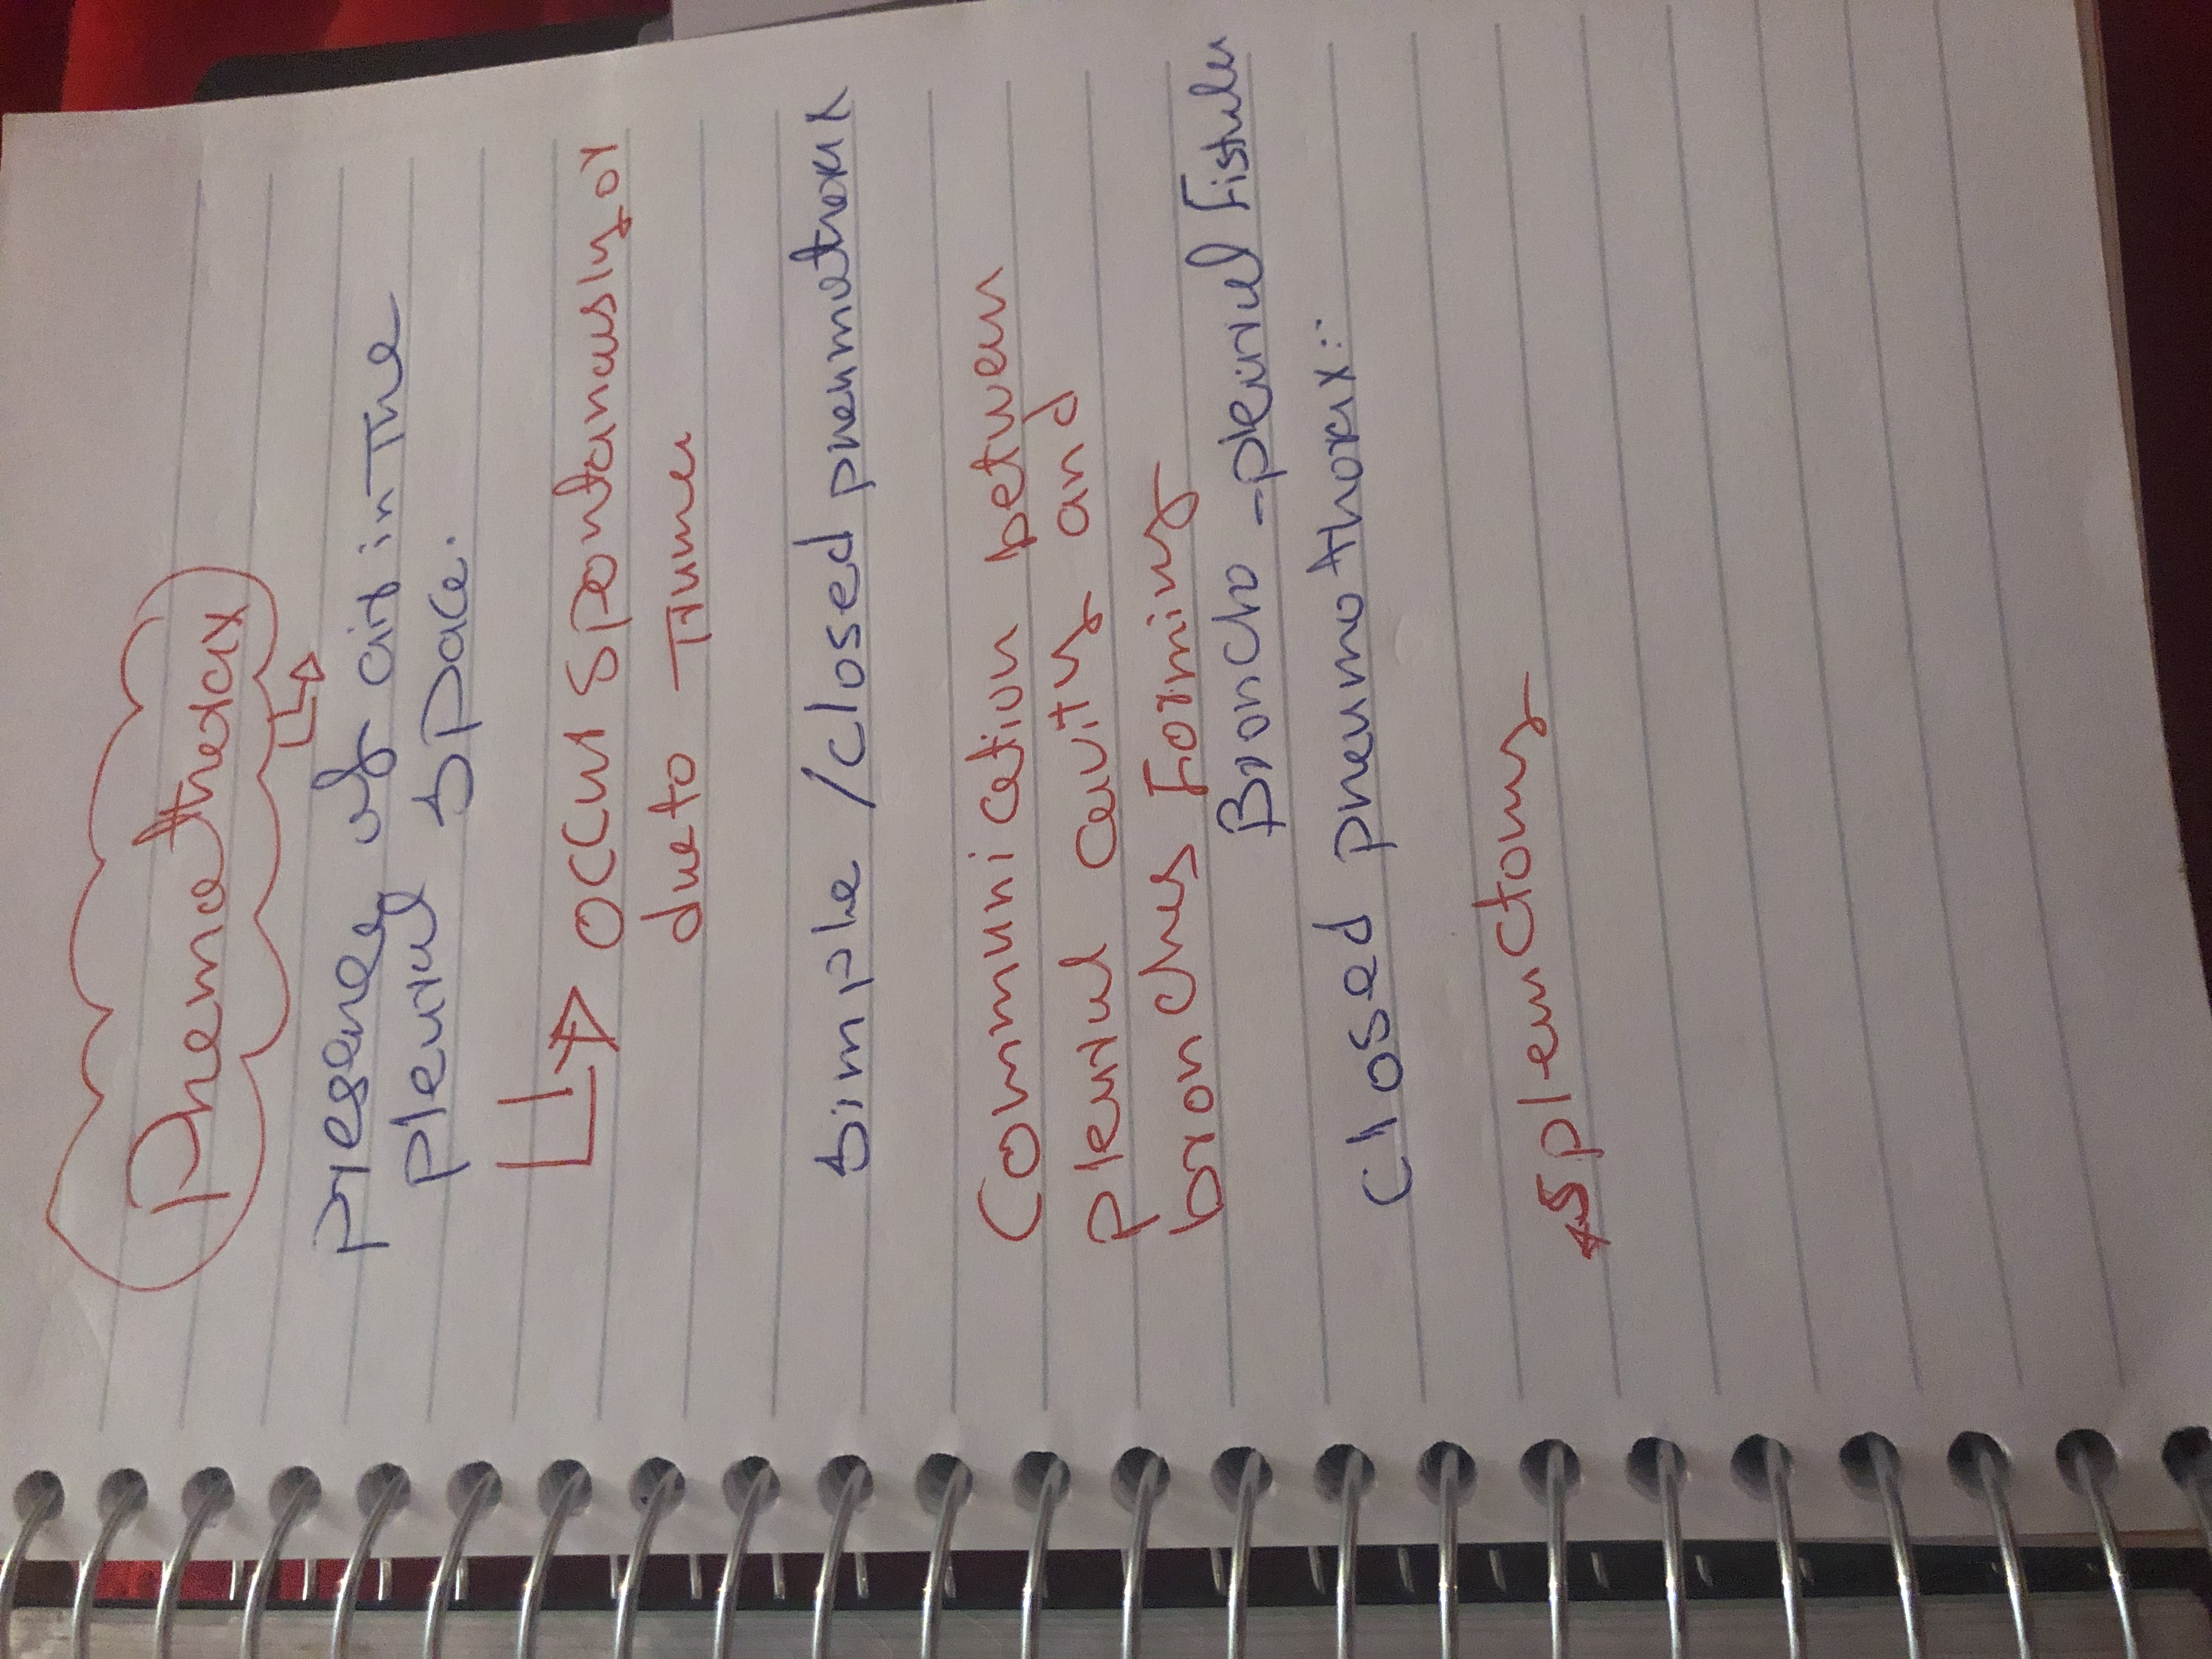 Pnemothrax
presence of air in The
pleural space.
occur spontanously or
due to Truma
simple / closed pnenmothorax
Communication between
pleural cavity and
bronchus Forming
Broncho - pleural Fistula
Closed pneumothorax:-
Splenctomy